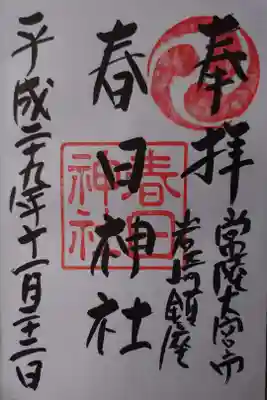 奉拝
常陸大宮市
岩崎鎮座
春日神社
春日神社
平成二十九年十一月二十三日